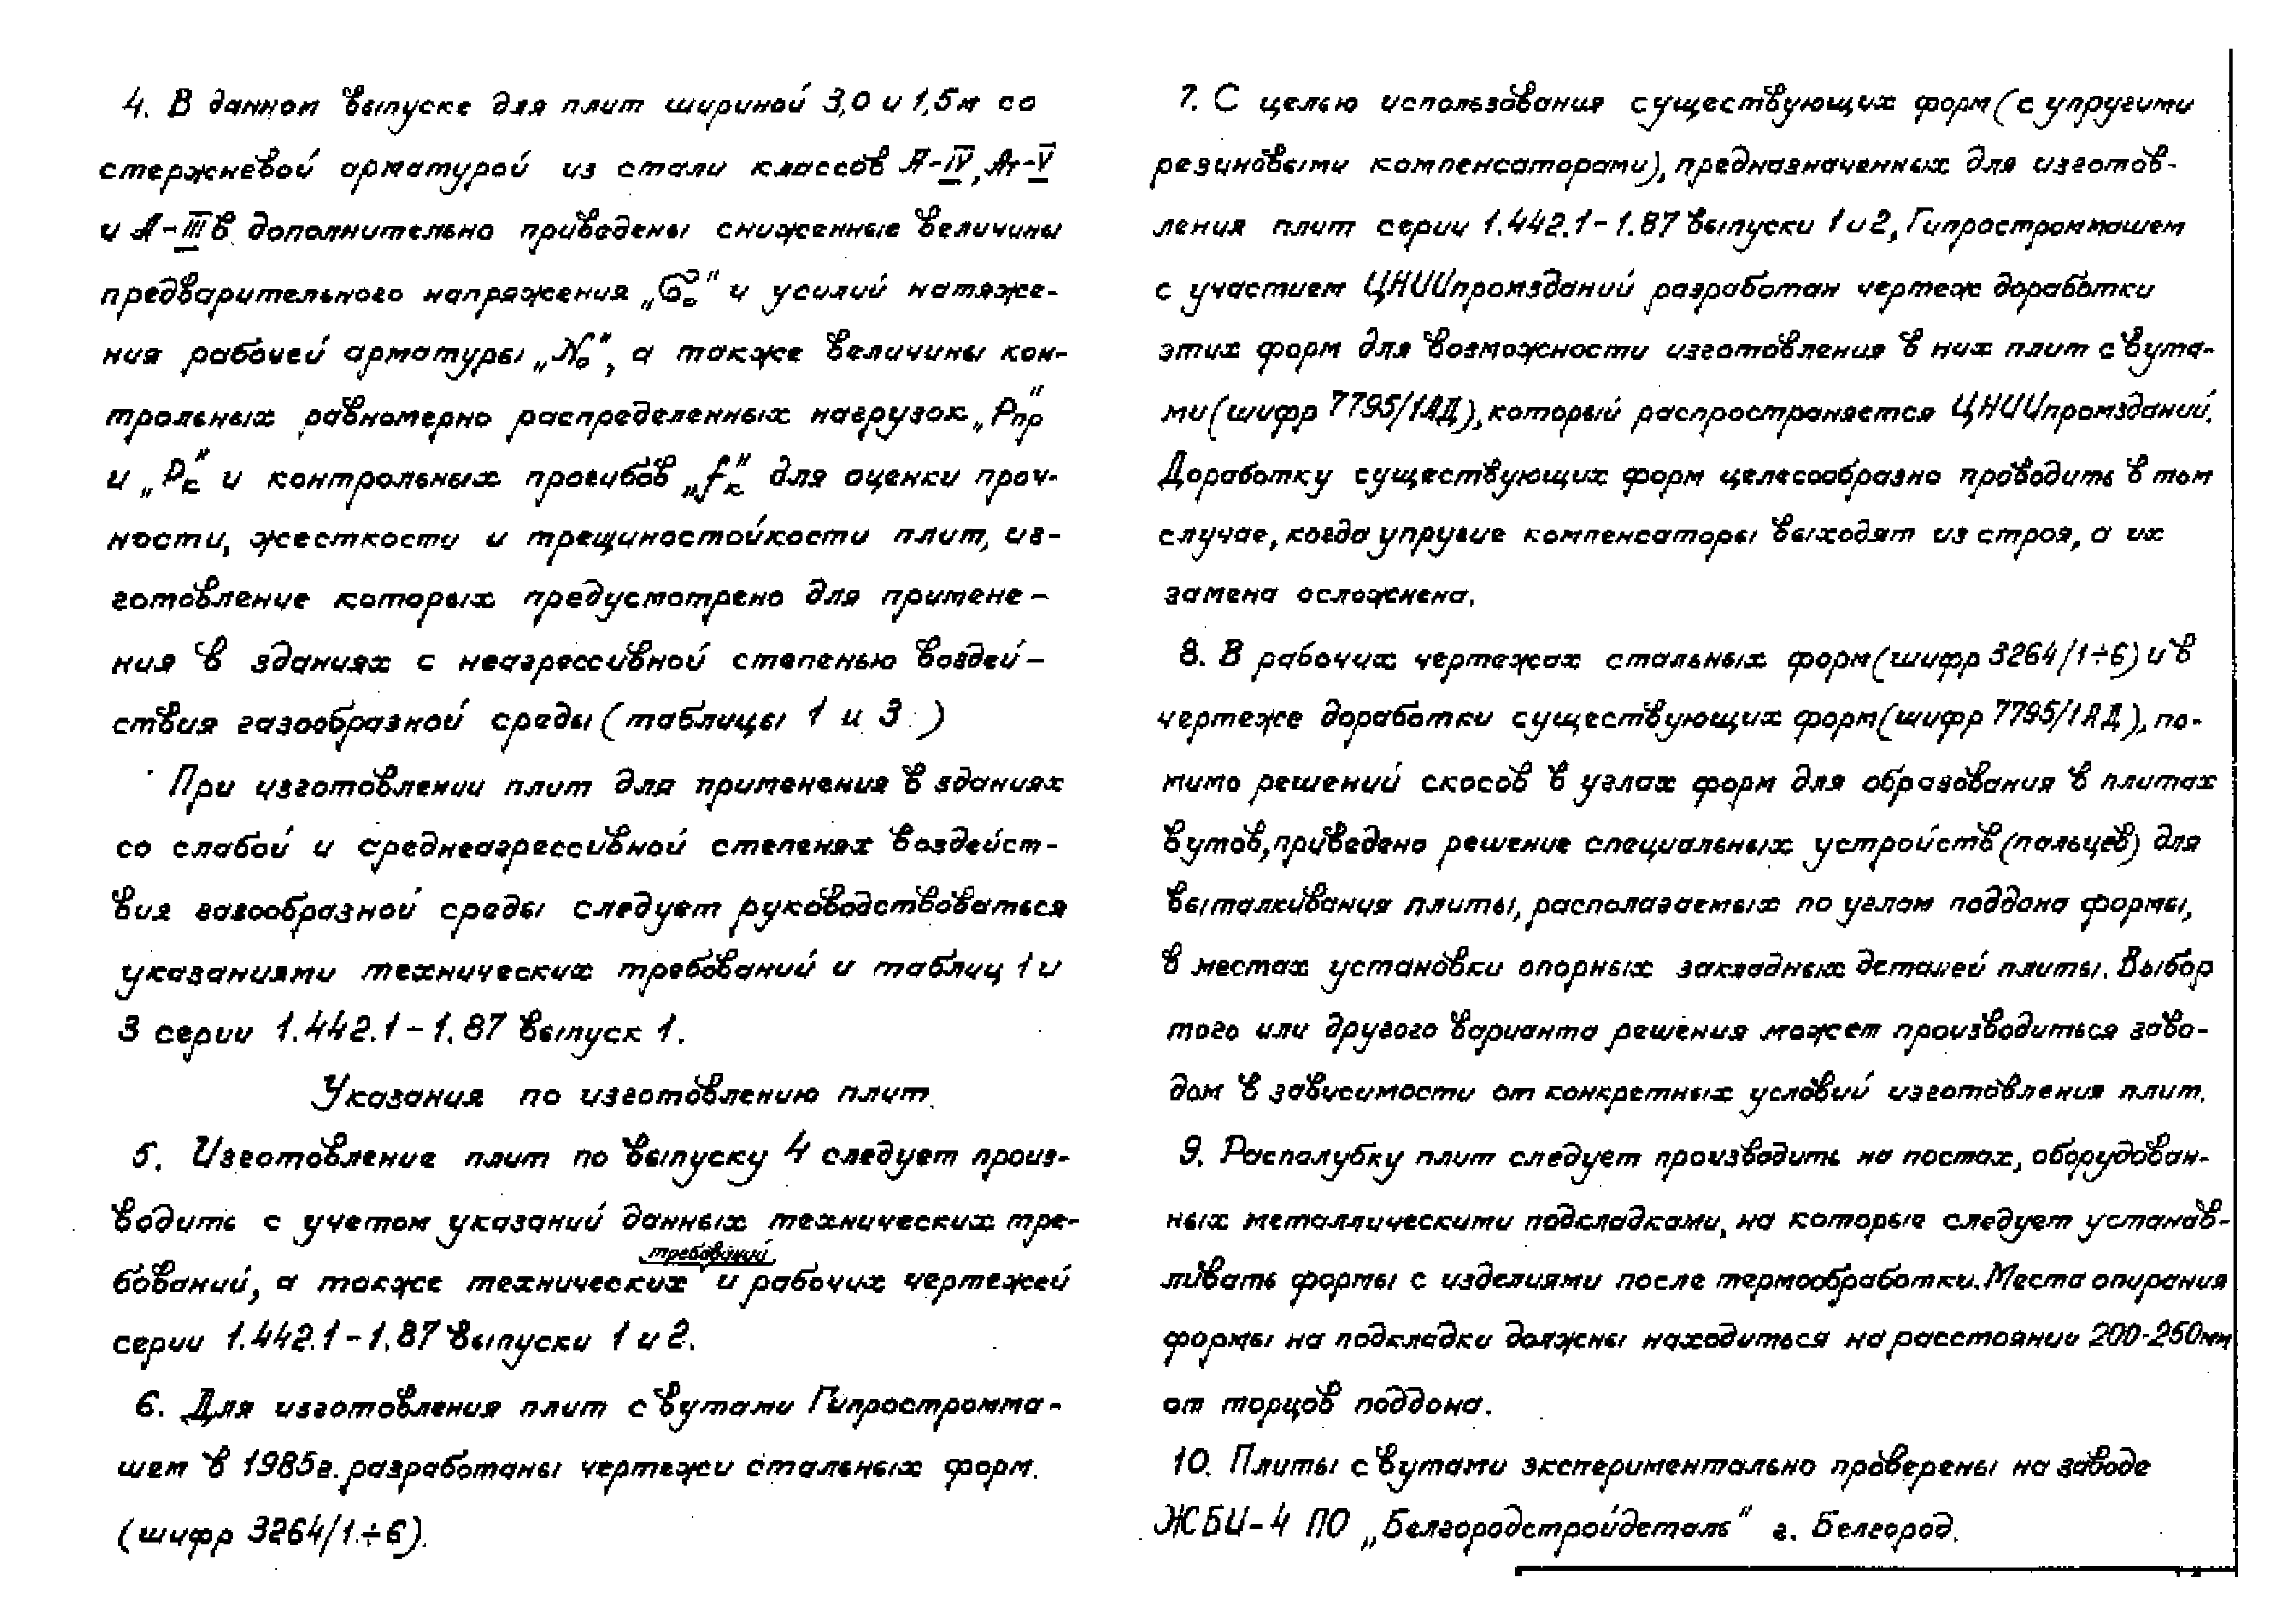 4. В данном выпуске для плит шириной 3,0 и 1,5м со
стержневой арматурой из стали классов А-IV, Ат-V
и А-IIIв дополнительно приведены сниженные величины
предварительного напряжения „σ₀" и усилий натяже-
ния рабочей арматуры „N₀", а также величины кон-
трольных равномерно распределенных нагрузок „Рпр"
и „Рк" и контрольных прогибов „fк" для оценки проч-
ности, жесткости и трещиностойкости плит, из-
готовление которых предусмотрено для примене-
ния в зданиях с неагрессивной степенью воздей-
ствия газообразной среды (таблицы 1 и 3.)
При изготовлении плит для применения в зданиях
со слабой и среднеагрессивной степенях воздейст-
вия газообразной среды следует руководствоваться
указаниями технических требований и таблиц 1 и
3 серии 1.442.1-1.87 выпуск 1.
Указания по изготовлению плит.
5. Изготовление плит по выпуску 4 следует произ-
водить с учетом указаний данных технических тре-
бований, а также технических требований и рабочих чертежей
серии 1.442.1-1.87 выпуски 1 и 2.
6. Для изготовления плит с вутами Гипростромма-
шем в 1985г. разработаны чертежи стальных форм.
(шифр 3264/1÷6).
7. С целью использования существующих форм (с упругими
резиновыми компенсаторами), предназначенных для изготов-
ления плит серии 1.442.1-1.87 выпуски 1 и 2, Гипростроммашем
с участием ЦНИИпромзданий разработан чертеж доработки
этих форм для возможности изготовления в них плит с вута-
ми (шифр 7795/1АД), который распространяется ЦНИИпромзданий.
Доработку существующих форм целесообразно проводить в том
случае, когда упругие компенсаторы выходят из строя, а их
замена осложнена.
8. В рабочих чертежах стальных форм (шифр 3264/1÷6) и в
чертеже доработки существующих форм (шифр 7795/1АД), по-
мимо решений скосов в углах форм для образования в плитах
вутов, приведено решение специальных устройств (пальцев) для
выталкивания плиты, располагаемых по углам поддона формы,
в местах установки опорных закладных деталей плиты. Выбор
того или другого варианта решения может производиться заво-
дом в зависимости от конкретных условий изготовления плит.
9. Распалубку плит следует производить на постах, оборудован-
ных металлическими подкладками, на которые следует устанав-
ливать формы с изделиями после термообработки. Места опирания
формы на подкладки должны находиться на расстоянии 200-250мм
от торцов поддона.
10. Плиты с вутами экспериментально проверены на заводе
ЖБИ-4 ПО „Белгородстройдеталь" г. Белгород.